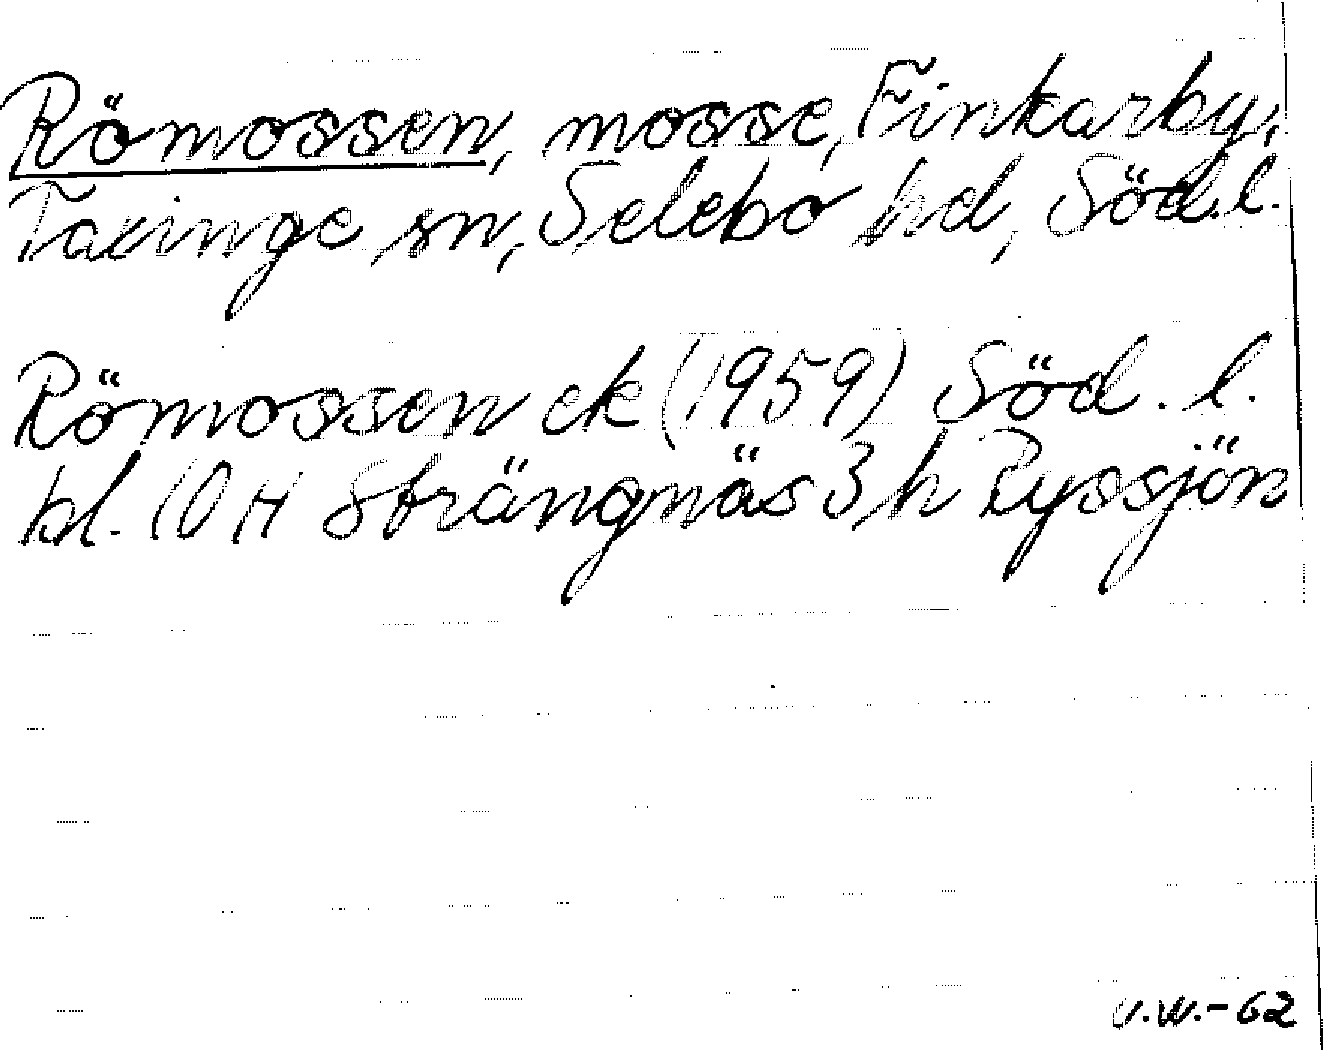 Römossen, mosse, Finkarby,
Taxinge sn, Selebo hd, Söd.l.
Römossen ek (1959) Söd. l.
bl. 10 H Strängnäs 3 h Ryssjön
U.W.-62